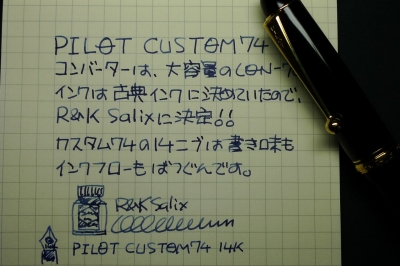 PILOT CUSTOM 74
コンバーターは、大容量のCON-7
インクは古典インクに決めていたので、
R&K Salixに決定!!
カスタム74の14ニブは書き味も
インクフローもばつぐんです。
R&K Salix
PILOT CUSTOM74 14K